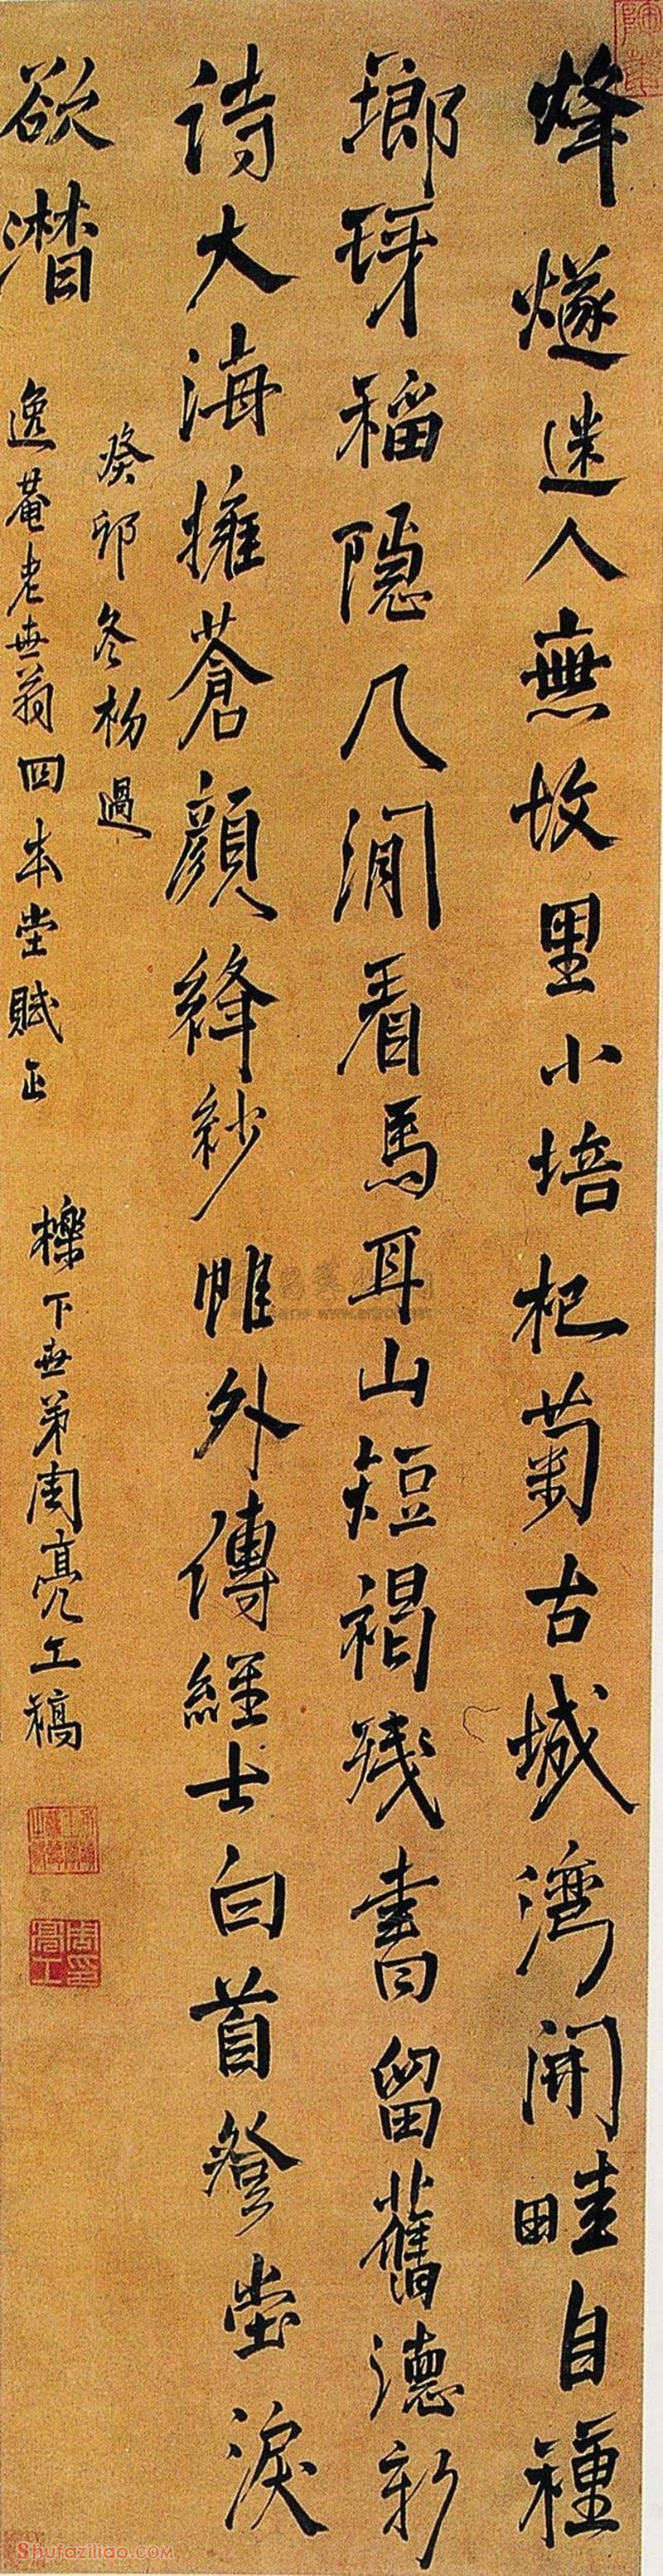 烽燧迷人無故里小培杞菊古城灣開畦自種
瑯琊稻隱几閒看馬耳山短褐殘書留舊德新
詩大海擁蒼顏絳紗帷外傳經士白首登堂淚
欲潸
癸卯冬杪過
逸菴老世翁四本堂賦正
櫟下世弟周亮工稿
周亮工印
Shufaziliao.com